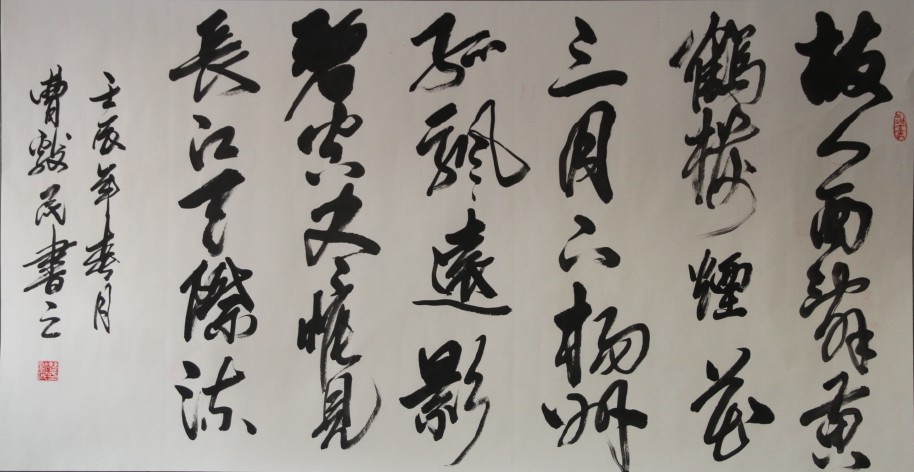 故人西辭黃
鶴樓煙花
三月下楊州
孤飄遠影
碧空尽惟見
長江天際流
壬辰年春月
曹毅民書之